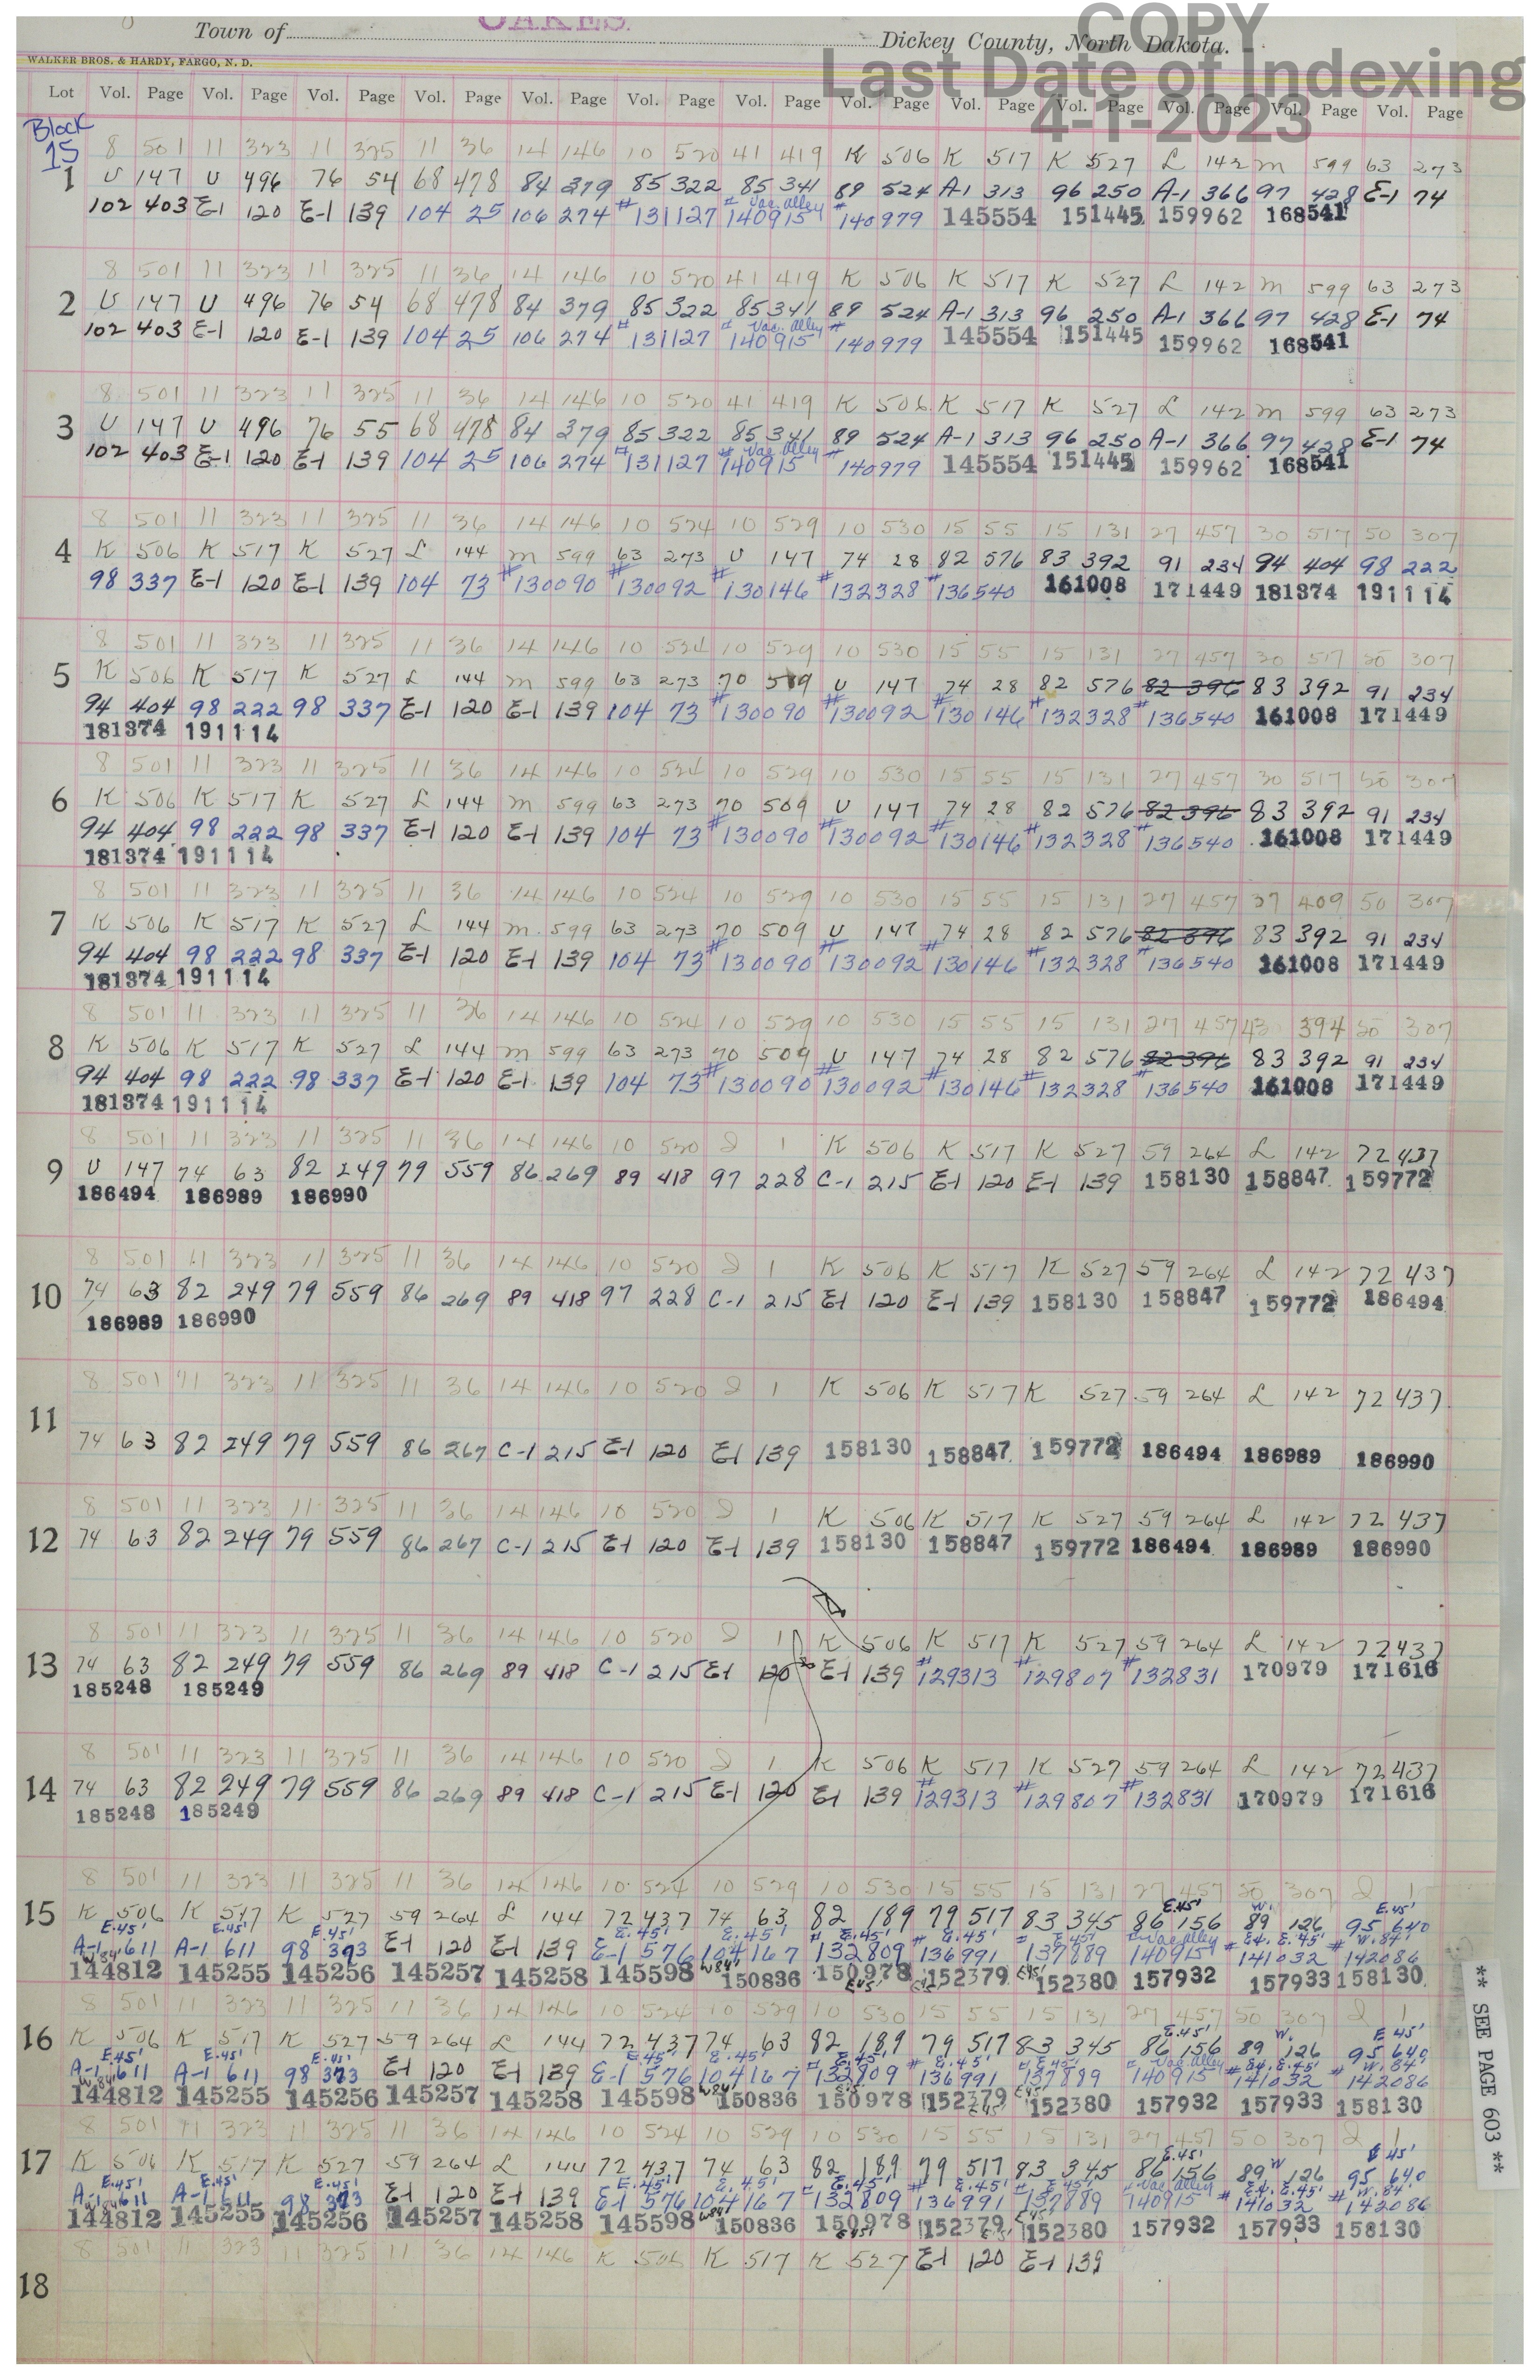 OAKES.
COPY
Town of Dickey County, North Dakota.
Last Date of Indexing
WALKER BROS. & HARDY, FARGO, N. D.
Lot Vol. Page Vol. Page Vol. Page Vol. Page Vol. Page Vol. Page Vol. Page Vol. Page Vol. Page Vol. Page Vol. Page Vol. Page Vol. Page
4-1-2023
Block
15
8 501 11 323 11 325 11 36 14 146 10 520 41 419 K 506 K 517 K 527 L 142 M 599 63 273
1 U 147 U 496 76 54 68 478 84 379 85 322 85 341 89 524 A-1 313 96 250 A-1 366 97 428 E-1 74
102 403 E-1 120 E-1 139 104 25 106 274 #131127 # Vac. Alley 140915 #140979 145554 151445 159962 168541
8 501 11 323 11 325 11 36 14 146 10 520 41 419 K 506 K 517 K 527 L 142 M 599 63 273
2 U 147 U 496 76 54 68 478 84 379 85 322 85 341 89 524 A-1 313 96 250 A-1 366 97 428 E-1 74
102 403 E-1 120 E-1 139 104 25 106 274 #131127 # Vac. Alley 140915 #140979 145554 151445 159962 168541
8 501 11 323 11 325 11 36 14 146 10 520 41 419 K 506 K 517 K 527 L 142 M 599 63 273
3 U 147 U 496 76 55 68 478 84 379 85 322 85 341 89 524 A-1 313 96 250 A-1 366 97 428 E-1 74
102 403 E-1 120 E-1 139 104 25 106 274 #131127 # Vac. Alley 140915 #140979 145554 151445 159962 168541
8 501 11 323 11 325 11 36 14 146 10 524 10 529 10 530 15 55 15 131 27 457 30 517 50 307
4 K 506 K 517 K 527 L 144 M 599 63 273 U 147 74 28 82 576 83 392 91 234 94 404 98 222
98 337 E-1 120 E-1 139 104 73 #130090 #130092 #130146 #132328 #136540 161008 171449 181374 191114
8 501 11 323 11 325 11 36 14 146 10 524 10 529 10 530 15 55 15 131 27 457 30 517 50 307
5 K 506 K 517 K 527 L 144 M 599 63 273 70 509 U 147 74 28 82 576 82 396 83 392 91 234
94 404 98 222 98 337 E-1 120 E-1 139 104 73 #130090 #130092 #130146 #132328 #136540 161008 171449
181374 191114
8 501 11 323 11 325 11 36 14 146 10 524 10 529 10 530 15 55 15 131 27 457 30 517 50 307
6 K 506 K 517 K 527 L 144 M 599 63 273 70 509 U 147 74 28 82 576 82 396 83 392 91 234
94 404 98 222 98 337 E-1 120 E-1 139 104 73 #130090 #130092 #130146 #132328 #136540 161008 171449
181374 191114
8 501 11 323 11 325 11 36 14 146 10 524 10 529 10 530 15 55 15 131 27 457 37 409 50 307
7 K 506 K 517 K 527 L 144 M 599 63 273 70 509 U 147 74 28 82 576 82 396 83 392 91 234
94 404 98 222 98 337 E-1 120 E-1 139 104 73 #130090 #130092 #130146 #132328 #136540 161008 171449
181374 191114
8 501 11 323 11 325 11 36 14 146 10 524 10 529 10 530 15 55 15 131 27 457 43 394 50 307
8 K 506 K 517 K 527 L 144 M 599 63 273 70 509 U 147 74 28 82 576 82 396 83 392 91 234
94 404 98 222 98 337 E-1 120 E-1 139 104 73 #130090 #130092 #130146 #132328 #136540 161008 171449
181374 191114
8 501 11 323 11 325 11 36 14 146 10 520 J 1 K 506 K 517 K 527 59 264 L 142 72 437
9 U 147 74 63 82 249 79 559 86 269 89 418 97 228 C-1 215 E-1 120 E-1 139 158130 158847 159772
186494 186989 186990
8 501 11 323 11 325 11 36 14 146 10 520 J 1 K 506 K 517 K 527 59 264 L 142 72 437
10 74 63 82 249 79 559 86 269 89 418 97 228 C-1 215 E-1 120 E-1 139 158130 158847 159772 186494
186989 186990
8 501 11 323 11 325 11 36 14 146 10 520 J 1 K 506 K 517 K 527 59 264 L 142 72 437
11 74 63 82 249 79 559 86 267 C-1 215 E-1 120 E-1 139 158130 158847 159772 186494 186989 186990
8 501 11 323 11 325 11 36 14 146 10 520 J 1 K 506 K 517 K 527 59 264 L 142 72 437
12 74 63 82 249 79 559 86 267 C-1 215 E-1 120 E-1 139 158130 158847 159772 186494 186989 186990
8 501 11 323 11 325 11 36 14 146 10 520 J 1 K 506 K 517 K 527 59 264 L 142 72 437
13 74 63 82 249 79 559 86 269 89 418 C-1 215 E-1 120 E-1 139 #129313 #129807 #132831 170979 171616
185248 185249
8 501 11 323 11 325 11 36 14 146 10 520 J 1 K 506 K 517 K 527 59 264 L 142 72 437
14 74 63 82 249 79 559 86 269 89 418 C-1 215 E-1 120 E-1 139 #129313 #129807 #132831 170979 171616
185248 185249
8 501 11 323 11 325 11 36 14 146 10 524 10 529 10 530 15 55 15 131 27 457 50 307 J 1
15 K 506 K 517 K 527 59 264 L 144 72 437 74 63 82 189 79 517 83 345 E.45' 86 156 W. 89 126 E.45' 95 640
E.45' A-1 611 E.45' A-1 611 E.45' 98 393 E-1 120 E-1 139 E.45' E-1 576 E.45' 104 167 # E.45' 132809 # E.45' 136991 # E.45' 137889 # Vac Alley 140915 # E4. E.45' 141032 # W.84' 142086
W84' 144812 145255 145256 145257 145258 145598 W84' 150836 150978 E45' 152379 E45' 152380 E45' 157932 157933 158130
8 501 11 323 11 325 11 36 14 146 10 524 10 529 10 530 15 55 15 131 27 457 50 307 J 1
16 K 506 K 517 K 527 59 264 L 144 72 437 74 63 82 189 79 517 83 345 E.45' 86 156 W. 89 126 E 45' 95 640
E.45' A-1 611 E.45' A-1 611 E.45' 98 373 E-1 120 E-1 139 E.45' E-1 576 E.45' 104 167 # E.45' 132809 # E.45' 136991 # E.45' 137889 # Vac Alley 140915 # E4. E.45' 141032 # W.84' 142086
W84' 144812 145255 145256 145257 145258 145598 W84' 150836 E45' 150978 152379 E45' 152380 E45' 157932 157933 158130
8 501 11 323 11 325 11 36 14 146 10 524 10 529 10 530 15 55 15 131 27 457 50 307 J 1
17 K 506 K 517 K 527 59 264 L 144 72 437 74 63 82 189 79 517 83 345 E.45' 86 156 W 89 126 E 45' 95 640
E.45' A-1 611 E.45' A-1 611 E.45' 98 393 E-1 120 E-1 139 E.45' E-1 576 E.45' 104 167 # E.45' 132809 # E.45' 136991 # E.45' 137889 # Vac Alley 140915 # E4. E.45' 141032 # W.84' 142086
W84' 144812 145255 145256 145257 145258 145598 W84' 150836 150978 E45' 152379 E45' 152380 E45' 157932 157933 158130
8 501 11 323 11 325 11 36 14 146 K 506 K 517 K 527 E-1 120 E-1 139
18
** SEE PAGE 603 **